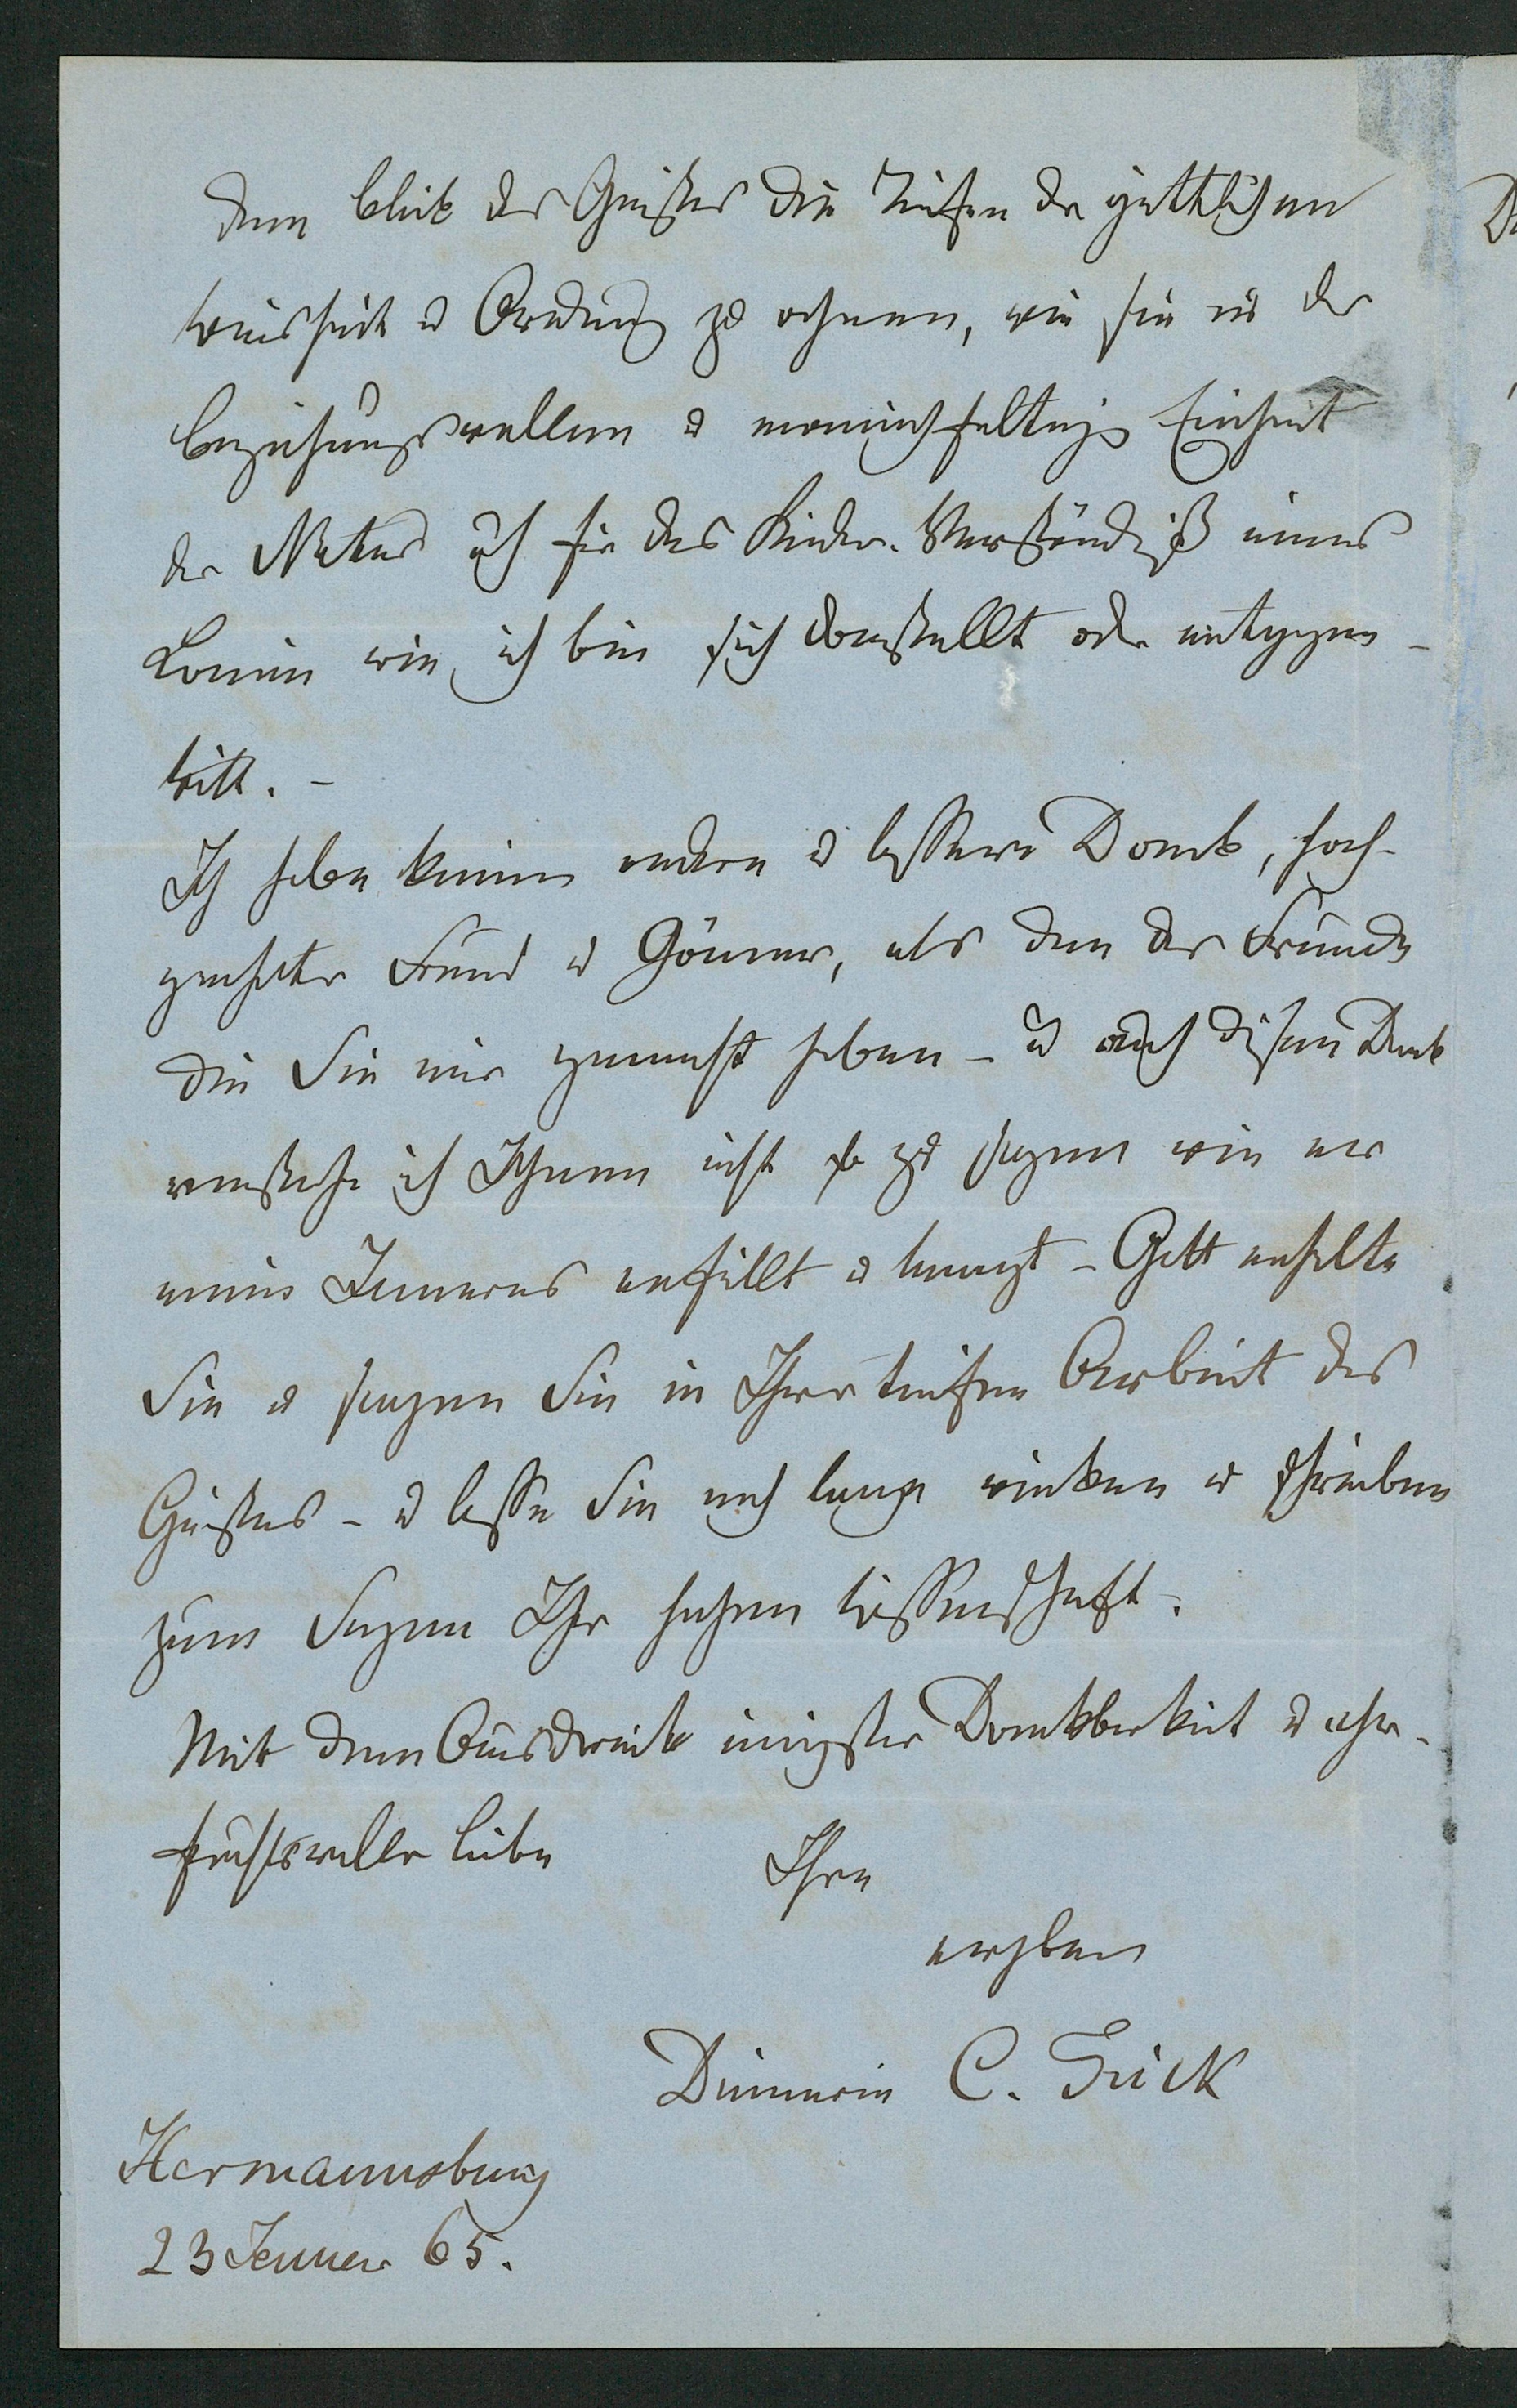 dem Blick des Geistes die Tiefen der göttlichen
Weisheit u Ordnung zu ahnen, wie sie in der
beziehungsvollen u mannichfaltigen Einheit
der Natur auch für das Kinder-Verständniß eines
Laien wie ich bin sich darstellt oder entgegen-
tritt. -
Ich habe keinen andern u bessern Dank, hoch-
geehrter Freund u Gönner, als den der Freude
die Sie mir gemacht haben - u auch diesen Dank
verstehe ich Ihnen nicht so zu sagen wie er
mein Inneres erfüllt u bewegt - Gott erhalte
Sie u segne Sie in Ihrer tiefen Arbeit des
Geistes - u lasse Sie noch lange wirken u schreiben
zum Segen Ihr hohen Wissenschaft.
Mit dem Ausdruck innigster Dankbarkeit u ehr-
furchtsvoller Liebe Ihre
ergeben
Dienerin C.
Hermannsburg
23 Jenner 65.